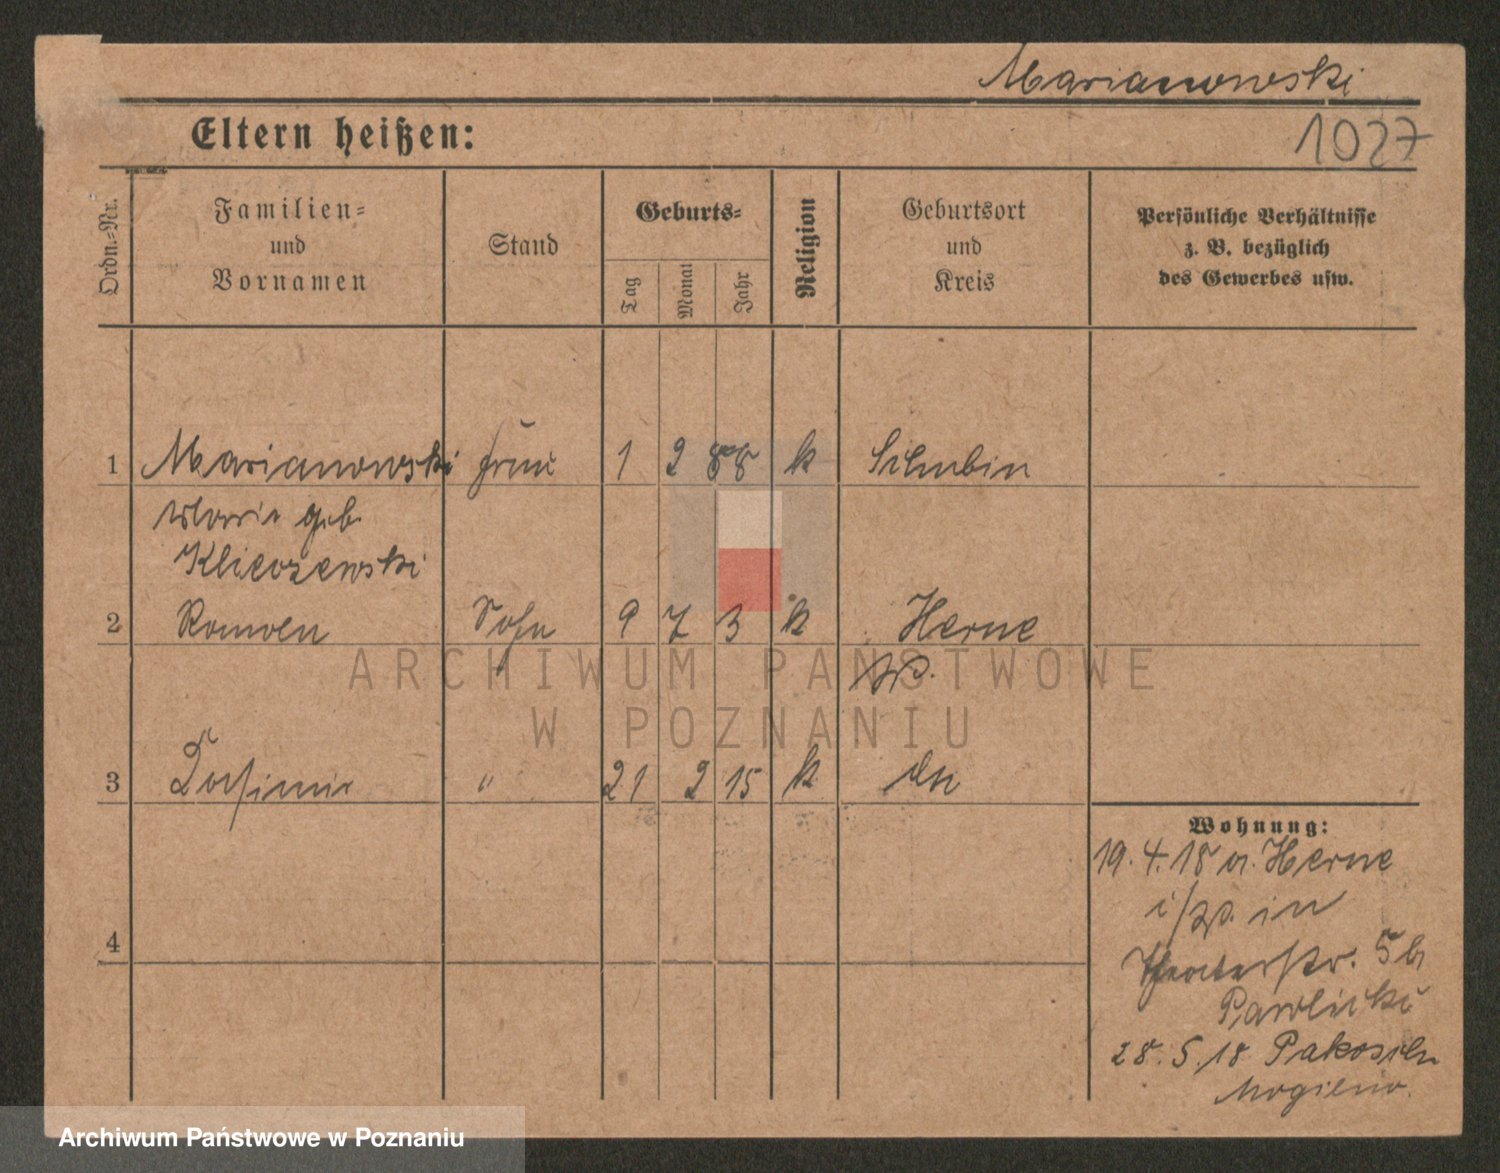 Marianowski
Eltern heißen:
1027
Ordn.-Nr.
Familien-
und
Vornamen
Stand
Geburts-
Tag
Monat
Jahr
Religion
Geburtsort
und
Kreis
Persönliche Verhältnisse
z. B. bezüglich
des Gewerbes usw.
1 Marianowski Frau 1 2 88 k Schubin
Maria geb.
2 Roman Sohn 9 7 3 k Herne
W.
ARCHIWUM PAŃSTWOWE
W POZNANIU
3 Kasimir " 21 2 15 k do
4
Wohnung:
19. 4. 18 a. Herne
i/W. in
Theaterstr. 5b
Pawlicki
28. 5. 18 Pakosch
Mogilno.
Archiwum Państwowe w Poznaniu